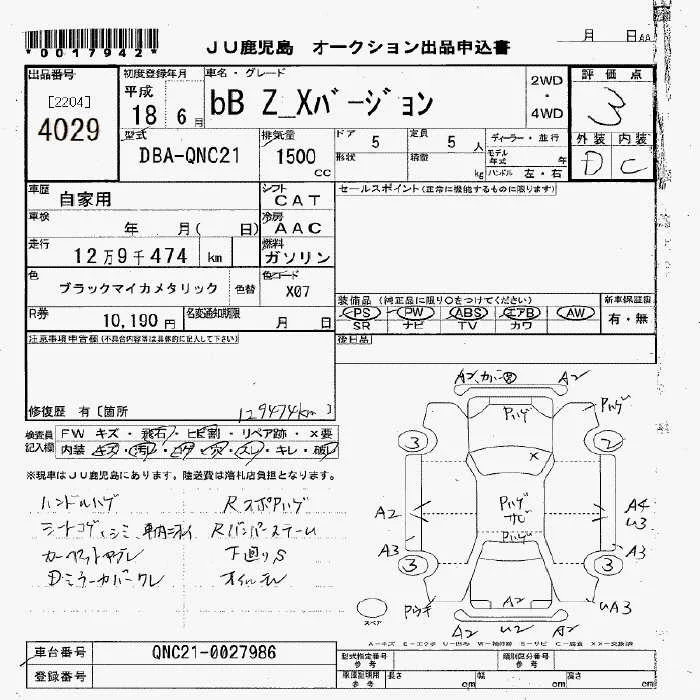 *0017942*
JU鹿児島 オークション出品申込書
月 日
出品番号
[2204]
4029
初度登録年月
平成
18 6月
車名・グレード
bB Z_Xバージョン
2WD
・
4WD
評価点
3
外装 内装
D C
型式
DBA-QNC21
排気量
1500
cc
ドア
5
定員
5 人
形状
積載
kg
ディーラー・並行
モデル
年式 年
ハンドル 左・右
車歴
自家用
シフト
CAT
セールスポイント(正常に機能するものに限ります)
車検
年 月( 日)
冷房
AAC
走行
12万9千474 km
燃料
ガソリン
色
ブラックマイカメタリック
色替
色コード
X07
R券
10,190 円
名変通知期限
月 日
装備品(純正品に限り○をつけてください)
PS PW ABS エアB AW
SR ナビ TV カワ
新車保証書
有・無
注意事項申告欄(不具合内容等は具体的に記入して下さい)
後日品
修復歴 有[箇所
129474km]
検査員
記入欄
FW キズ・飛石・ヒビ割・リペア跡・×要
内装 キズ・汚レ・コゲ・穴・スレ・キレ・破レ
※現車はJU鹿児島にあります。陸送費は落札店負担となります。
ハンドルハゲ
シートコゲ、シミ 車内ニオイ
カーペットヤブレ
Dミラーカバークレ
Rスポハゲ
Rバンパーステーム
下廻りS
オイルモレ
A2 カバー A2
Pハゲ
Pハゲ
3
2
×
A2
Pハゲ
サビ
Pハゲ
A4
U3
A3
A3
3
3
A2
Pウキ
UA3
A2 U2 A2
スペア
A－キズ E－エクボ U－凹ミ W－補修跡 S－サビ C－腐蝕 XX－交換済
車台番号
QNC21-0027986
登録番号
型式指定番号
参考
類別区分番号
参考
車庫証明用
参考
長さ cm
幅 cm
高さ cm